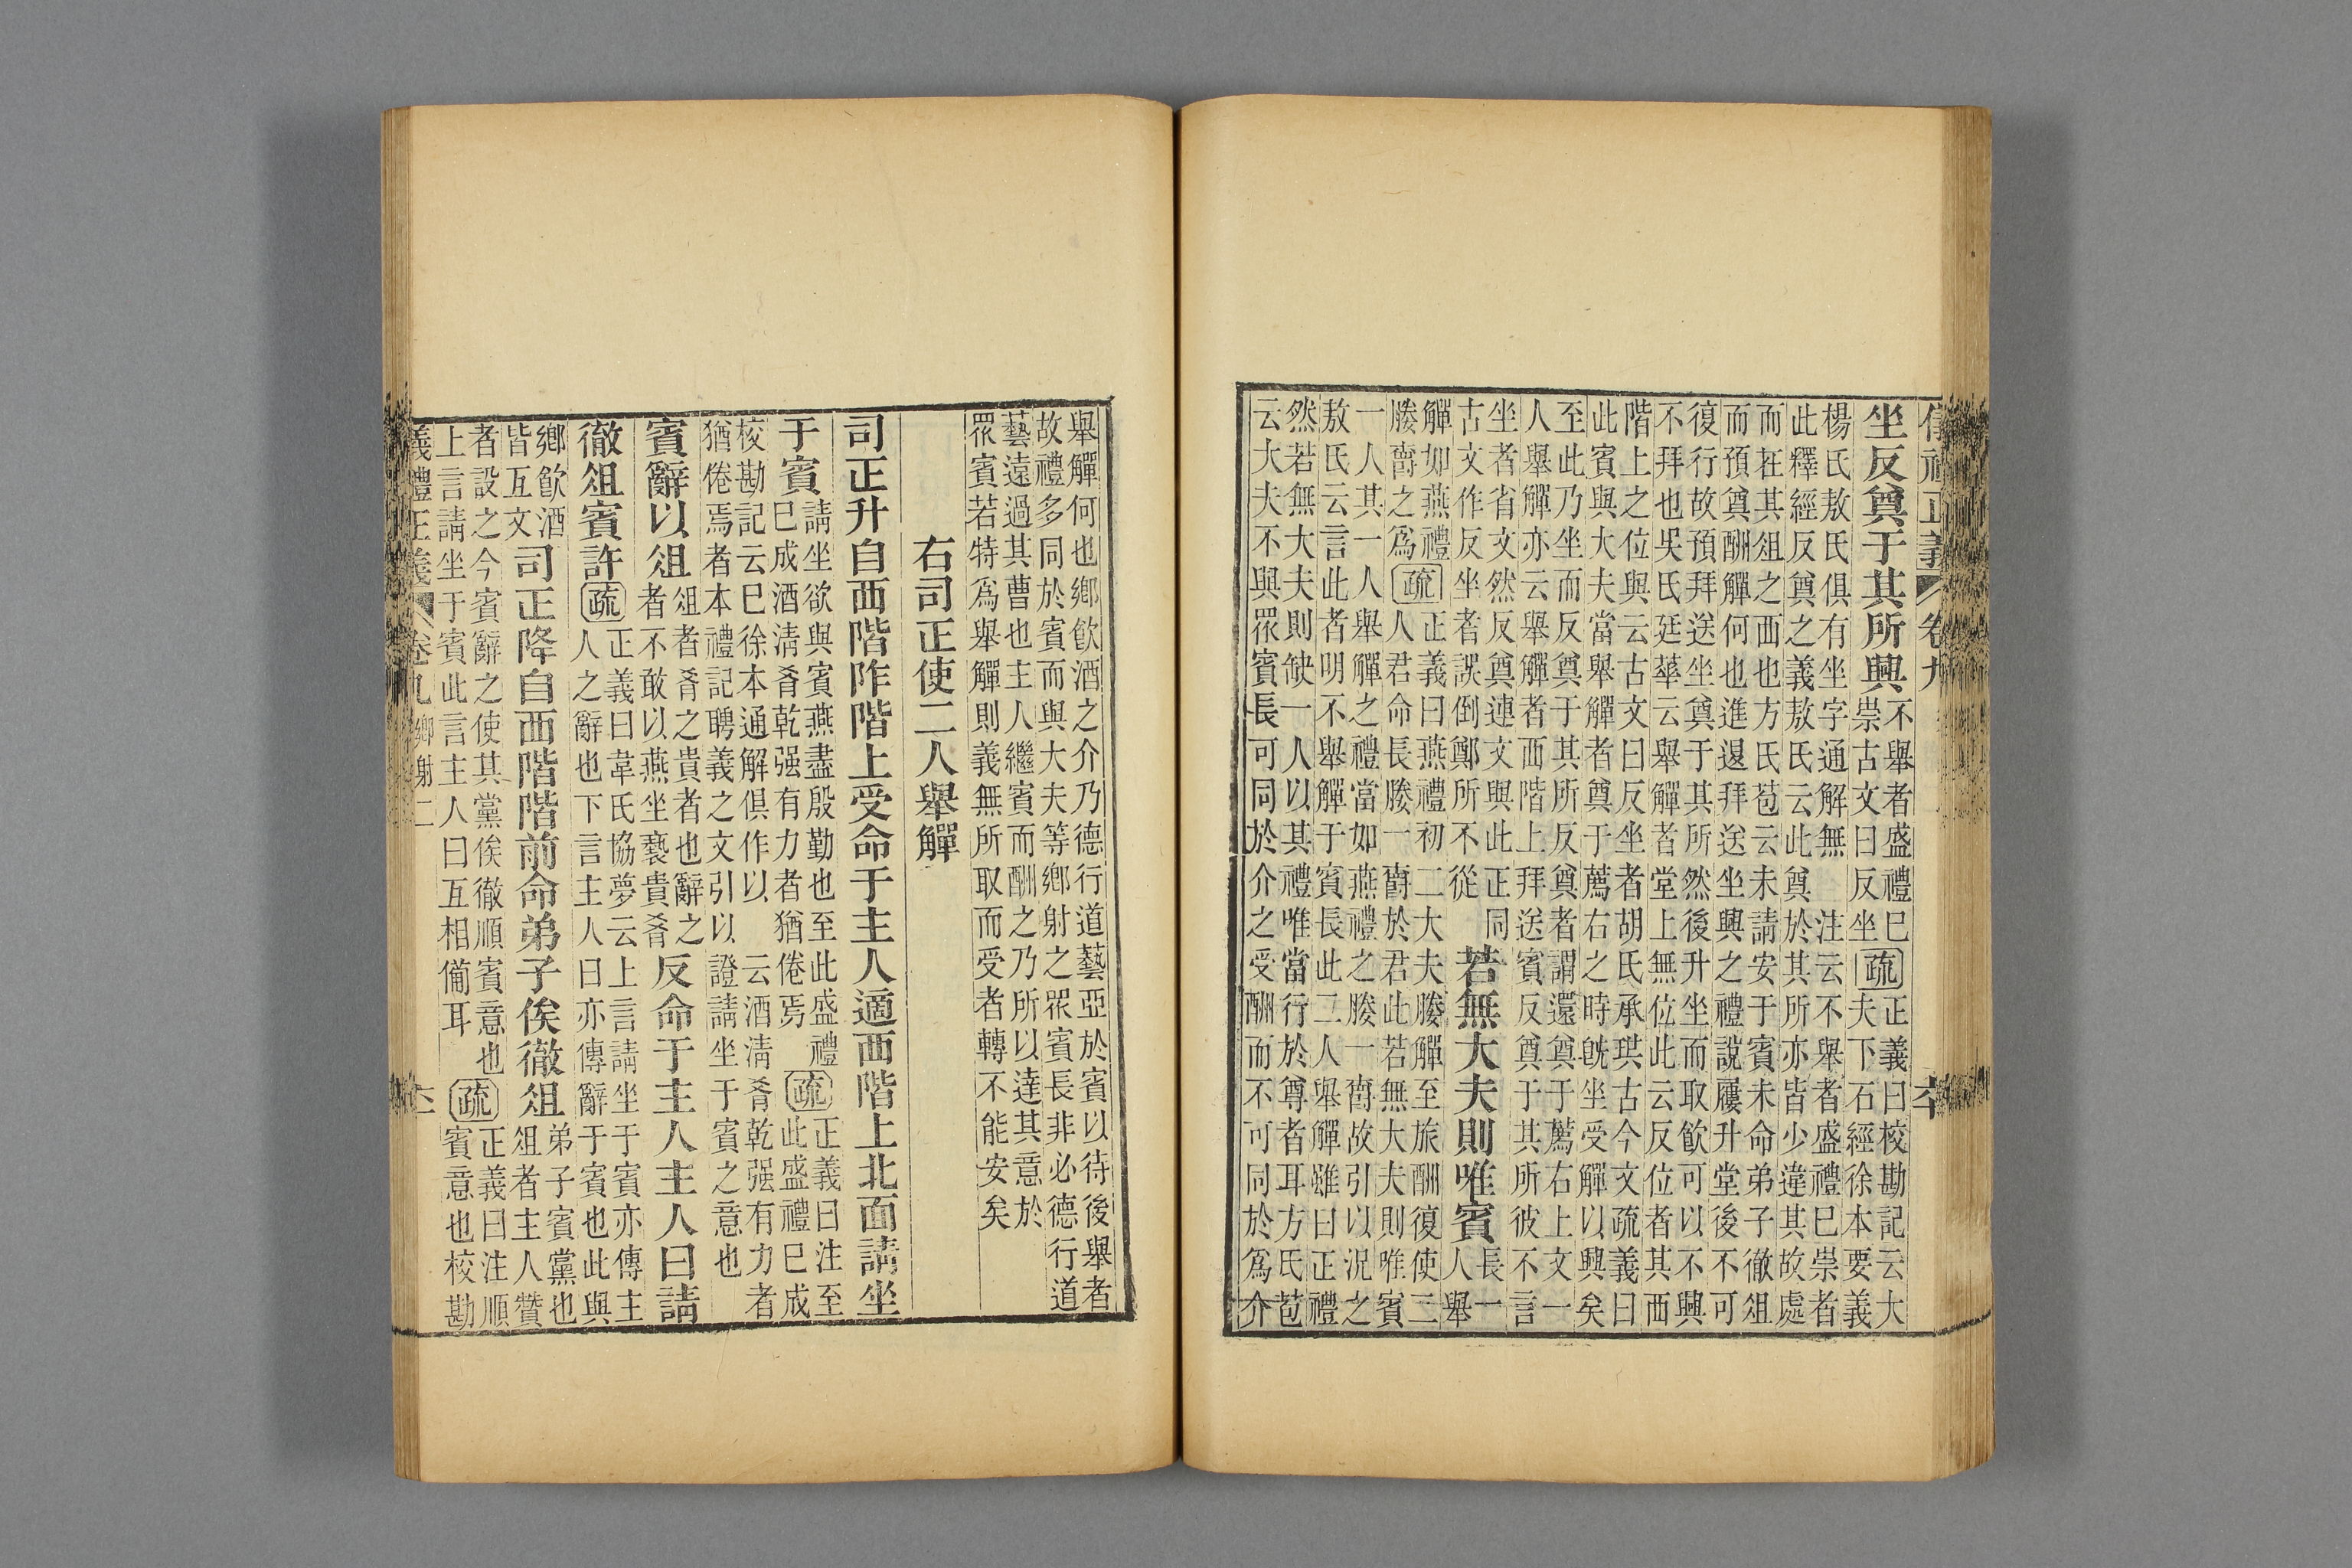 儀禮正義 卷九 六十
坐反奠于其所興 不舉者盛禮巳
崇古文曰反坐 疏 正義曰校勘記云大
夫下石經徐本要義
楊氏敖氏俱有坐字通解無 注云不舉者盛禮巳崇者
此釋經反奠之義敖氏云此奠於其所亦皆少違其故處
而在其俎之西也方氏苞云未請安于賓未命弟子徹俎
而預奠酬觶何也進退拜送坐興之禮說屨升堂後不可
復行故預拜送坐奠于其所然後升坐而取飲可以不興
不拜也吳氏廷華云舉觶者堂上無位此云反位者其西
階上之位與云古文曰反坐者胡氏承珙古今文疏義曰
此賓與大夫當舉觶者奠于薦右之時旣坐受觶以興矣
至此乃坐而反奠于其所反奠者謂還奠于薦右上文一
人舉觶亦云舉觶者西階上拜送賓反奠于其所彼不言
坐者省文然反奠連文與此正同
古文作反坐者誤倒鄭所不從
若無大夫則唯賓 長一
人舉
觶如燕禮
媵爵之爲 疏 正義曰燕禮初二大夫媵觶至旅酬復使二
人君命長媵一爵於君此若無大夫則唯賓
一人其一人舉觶之禮當如燕禮之媵一爵故引以況之
敖氏云言此者明不舉觶于賓長此二人舉觶雖曰正禮
然若無大夫則缺一人以其禮唯當行於尊者耳方氏苞
云大夫不與眾賓長可同於介之受酬而不可同於爲介
舉觶何也鄉飲酒之介乃德行道藝亞於賓以待後舉者
故禮多同於賓而與大夫等鄉射之眾賓長非必德行道
藝遠過其曹也主人繼賓而酬之乃所以達其意於
眾賓若特爲舉觶則義無所取而受者轉不能安矣
右司正使二人舉觶
司正升自西階阼階上受命于主人適西階上北面請坐
于賓 請坐欲與賓燕盡殷勤也至此盛禮
巳成酒清肴乾强有力者猶倦焉 疏 正義曰注至
此盛禮巳成
校勘記云巳徐本通解俱作以 云酒清肴乾强有力者
猶倦焉者本禮記聘義之文引以證請坐于賓之意也
賓辭以俎 俎者肴之貴者也辭之
者不敢以燕坐褻貴肴 反命于主人主人曰請
徹俎賓許 疏 正義曰韋氏協夢云上言請坐于賓亦傳主
人之辭也下言主人曰亦傳辭于賓也此與
鄉飲酒
皆互文 司正降自西階階前命弟子俟徹俎 弟子賓黨也
俎者主人贊
者設之今賓辭之使其黨俟徹順賓意也
上言請坐于賓此言主人曰互相備耳 疏 正義曰注順
賓意也校勘
義禮正義 卷九鄉射二